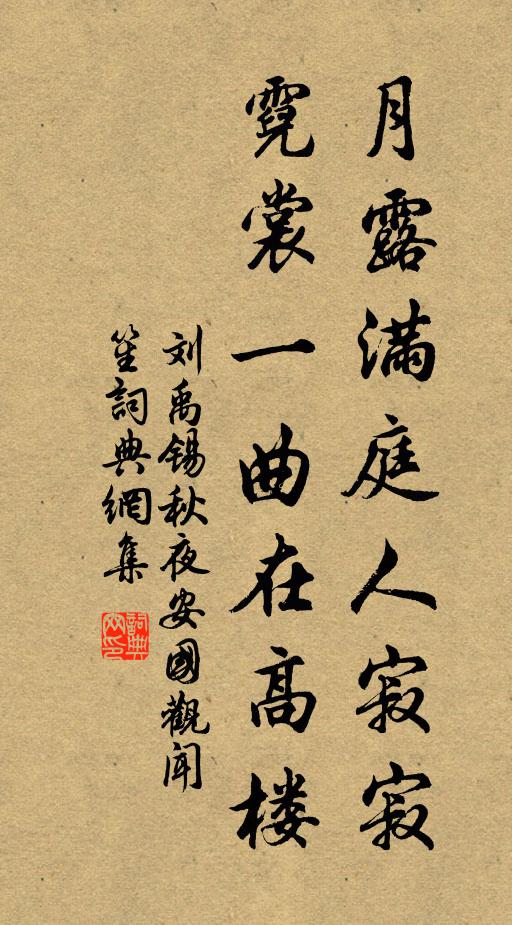 月露满庭人寂寂
霓裳一曲在高楼
刘禹锡秋夜安國觀闻
笙詞典網集
詞典网印